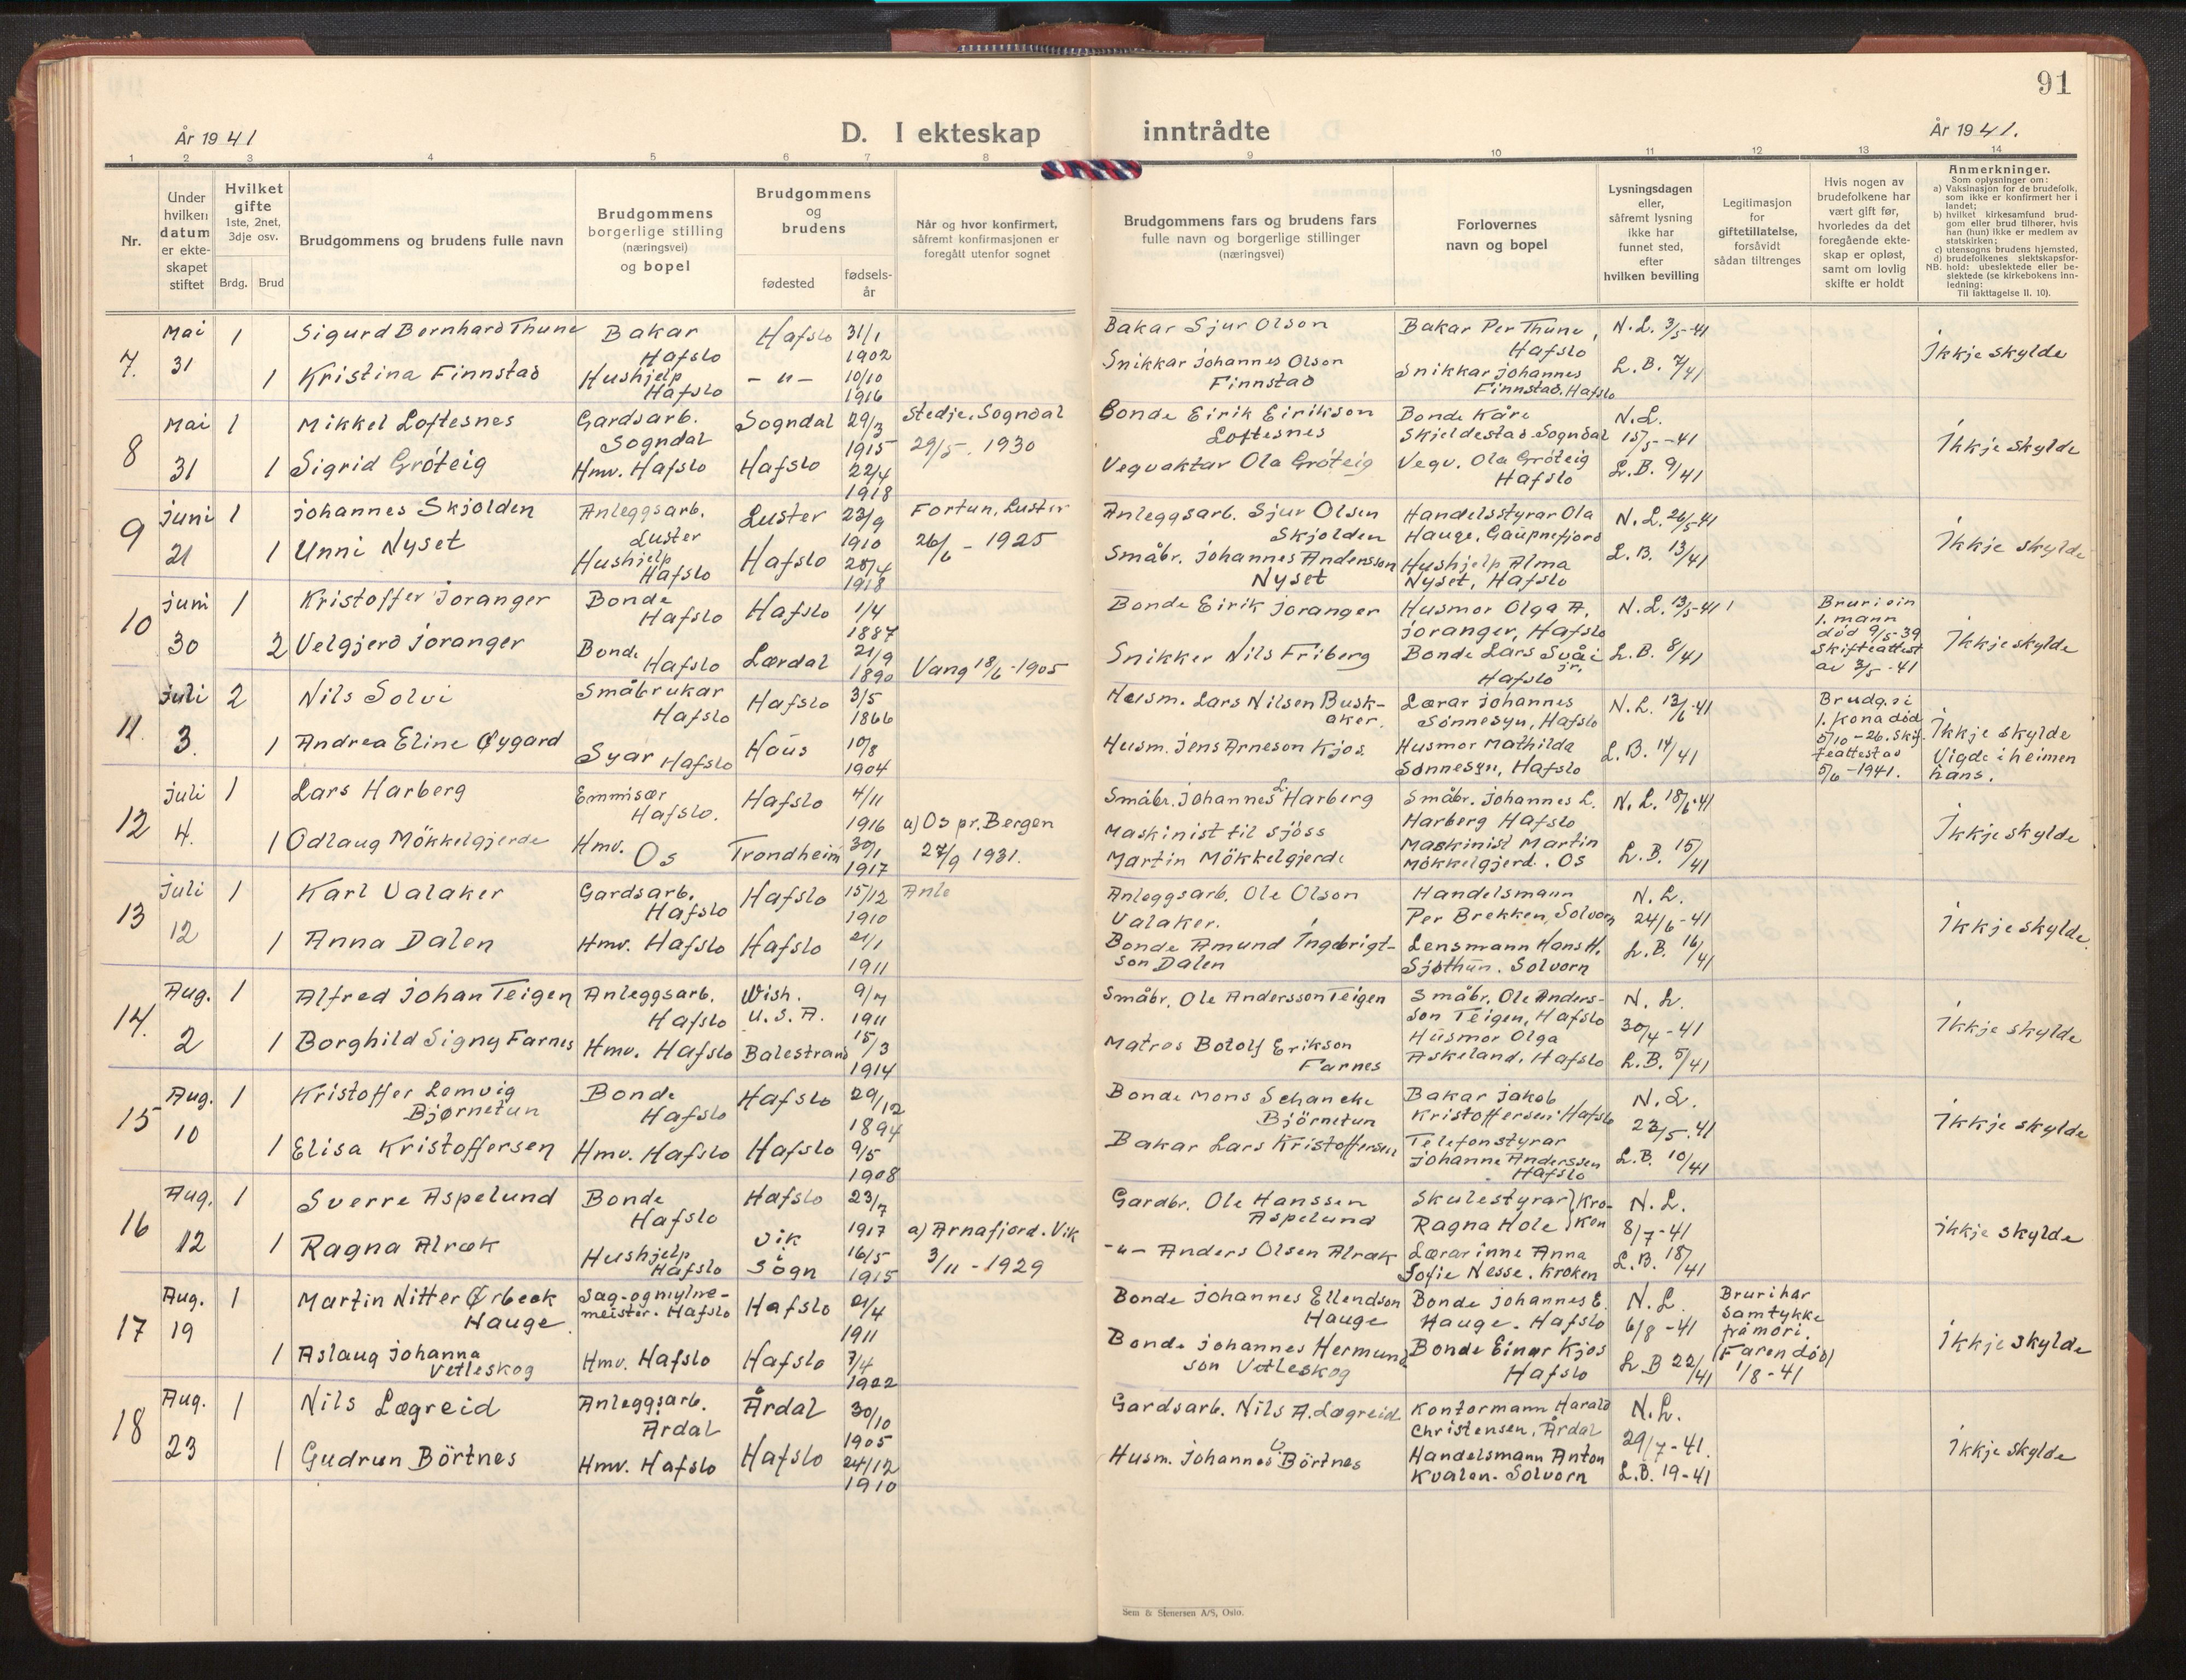 91
År 1941
D. I ekteskap inntrådte
År 1941.
1 2 3 4 5 6 7 8 9 10 11 12 13 14
Nr.
Under hvilken datum er ekte-skapet stiftet
Hvilket gifte
1ste, 2net, 3dje osv.
Brdg. Brud
Brudgommens og brudens fulle navn
Brudgommens borgerlige stilling (næringsvei) og bopel
Brudgommens og brudens
fødested
fødsels-år
Når og hvor konfirmert, såfremt konfirmasjonen er foregått utenfor sognet
Brudgommens fars og brudens fars fulle navn og borgerlige stillinger (næringsvei)
Forlovernes navn og bopel
Lysningsdagen eller, såfremt lysning ikke har funnet sted, efter hvilken bevilling
Legitimasjon for giftetillatelse, forsåvidt sådan tiltrenges
Hvis nogen av brudefolkene har vært gift før, hvorledes da det foregående ekte-skap er opløst, samt om lovlig skifte er holdt
Anmerkninger.
Som oplysninger om:
a) Vaksinasjon for de brudefolk, som ikke er konfirmert her i landet;
b) hvilket kirkesamfund brud-gom eller brud tilhører, hvis han (hun) ikke er medlem av statskirken;
c) utensogns brudens hjemsted,
d) brudefolkenes slektskapsfor-hold: ubeslektede eller be-slektede (se kirkebokens inn-ledning:
NB. Til iakttagelse II. 10).
7. Mai 31 1 Sigurd Bernhard Thune Bakar Hafslo Hafslo 31/1 1902 Bakar Sjur Olson Bakar Per Thune, Hafslo N.L. 3/5-41
1 Kristina Finnstad Hushjelp Hafslo -"- 10/10 1916 Snikkar Johannes Olson Finnstad Snikkar Johannes Finnstad. Hafslo L.B. 7/41 Ikkje skylde
8 Mai 31 1 Mikkel Loftesnes Gardsarb. Sogndal Sogndal 29/3 1915 Stedje, Sogndal 29/5. 1930 Bonde Eirik Eirikson Loftesnes Bonde Kåre Skjeldestad Sogndal N.L. 15/5-41
1 Sigrid Gróteig Hmv. Hafslo Hafslo 22/4 1918 Vegvaktar Ola Gróteig Vegv. Ola Gróteig Hafslo L.B. 9/41 Ikkje skylde
9 Juni 21 1 Johannes Skjolden Anleggsarb. Luster Luster 23/9 1910 Fortun, Luster 26/6 - 1925 Anleggsarb. Sjur Olsen Skjolden Handelsstyrar Ola Hauge, Gaupnefjord N.L. 26/5-41
1 Unni Nyset Hushjelp Hafslo Hafslo 28/4 1918 Småbr. Johannes Andersson Nyset Hushjelp Alma Nyset, Hafslo L.B. 13/41 Ikkje skylde
10 Juni 30 1 Kristoffer Joranger Bonde Hafslo Hafslo 1/4 1887 Bonde Eirik Joranger Husmor Olga A. Joranger, Hafslo N.L. 13/5-41
2 Velgjerd Joranger Bonde Hafslo Lærdal 21/9 1890 Vang 18/6-1905 Snikker Nils Friberg Bonde Lars Svåi jr. Hafslo L.B. 8/41 Bruri sin 1. mann død 9/5-39 Skifteattest av 3/5-41 Ikkje skylde
11. Juli 3. 2 Nils Solvi Småbrukar Hafslo Hafslo 3/5 1866 Husm. Lars Nilsen Busk-aker. Lærar Johannes Sønnesyn, Hafslo N.L. 13/6-41
1 Andrea Eline Øygard Syar Hafslo Haus 10/8 1904 Husm. Jens Arneson Kjos Husmor Mathilda Sønnesyn, Hafslo L.B. 14/41 Brudg. si 1. kona død 5/10-26. Skif-teattestas 5/6-1941. Ikkje skylde Vigde i heimen hans.
12 Juli 4. 1 Lars Harberg Emmisær Hafslo. Hafslo 4/11 1916 Småbr. Johannes L. Harberg Småbr. Johannes L. Harberg Hafslo N.L. 18/6-41
1 Odlaug Mökkelgjerde Hmv. Os Trondheim 30/1 1917 a) Os pr. Bergen 27/9 1931. Maskinist til sjöss Martin Mökkelgjerde Maskinist Martin Mökkelgjerd. Os L.B. 15/41 Ikkje skylde
13 Juli 12 1 Karl Valaker Gardsarb. Hafslo Hafslo 15/12 1910 Anle Anleggsarb. Ole Olson Valaker. Handelsmann Per Brekken, Solvorn N.L. 24/6-41
1 Anna Dalen Hmv. Hafslo Hafslo 21/1 1911 Bonde Amund Ingebrigt-son Dalen Lensmann Hans H. Sjøthun. Solvorn L.B. 16/41 Ikkje skylde.
14. Aug. 2 1 Alfred Johan Teigen Anleggsarb. Hafslo Wish. U.S.A. 9/7 1911 Småbr. Ole Andersson Teigen Småbr. Ole Anders-son Teigen, Hafslo N.L. 30/4-41
1 Borghild Signy Farnes Hmv. Hafslo Balestrand 15/3 1914 Matros Botolf Erikson Farnes Husmor Olga Askeland, Hafslo L.B. 5/41 Ikkje skylde
15 Aug. 10 1 Kristoffer Lemvig Bjørnetun Bonde Hafslo Hafslo 29/12 1894 Bonde Mons Schancke Björnetun Bakar Jakob Kristoffersen Hafslo N.L. 23/5.41
1 Elisa Kristoffersen Hmv. Hafslo Hafslo 9/5 1908 Bakar Lars Kristoffersen Telefonstyrar Johanne Anderssen Hafslo L.B. 10/41 Ikkje skylde
16 Aug. 12 1 Sverre Aspelund Bonde Hafslo Hafslo 23/7 1917 Gardbr. Ole Hanssen Aspelund Skulestyrar Ragna Hole Kro-ken N.L. 8/7-41
1 Ragna Alræk Hushjelp Hafslo Vik i Sogn 16/5 1915 a) Arnafjord. Vik 3/11-1929 -"- Anders Olsen Alræk Lærarinne Anna Sofie Nesse. Kroken L.B. 18/41 Ikkje skylde
17 Aug. 19 1 Martin Nitter Ørbeck Hauge Sag-og mylne-meister. Hafslo Hafslo 21/4 1911 Bonde Johannes Ellendson Hauge Bonde Johannes E. Hauge. Hafslo N.L. 6/8-41
1 Aslaug Johanna Vetleskog Hmv. Hafslo Hafslo 7/4 1922 Bonde Johannes Hermund-son Vetleskog Bonde Einar Kjos Hafslo L.B 22/41 Bruri har samtykke frå mori. (Faren død) 1/8-41 Ikkje skylde
18 Aug. 23 1 Nils Lægreid Anleggsarb. Årdal Årdal 30/10 1905 Gardsarb. Nils A. Lægreid Kontormann Harald Christensen, Årdal N.L. 29/7-41.
1 Gudrun Börtnes Hmv. Hafslo Hafslo 24/12 1910 Husm. Johannes O. Börtnes Handelsmann Anton Kvalen. Solvorn L.B. 19-41 Ikkje skylde
Sem & Stenersen A/S, Oslo.